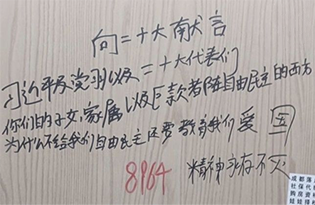 向二十大献言
习近平及党羽以及二十大代表们
你们的子女,家属以及巨款都在自由民主的西方
为什么不给我们自由民主还要教育我们爱国
8964 精神永存不灭
成都落
社保代
购房资